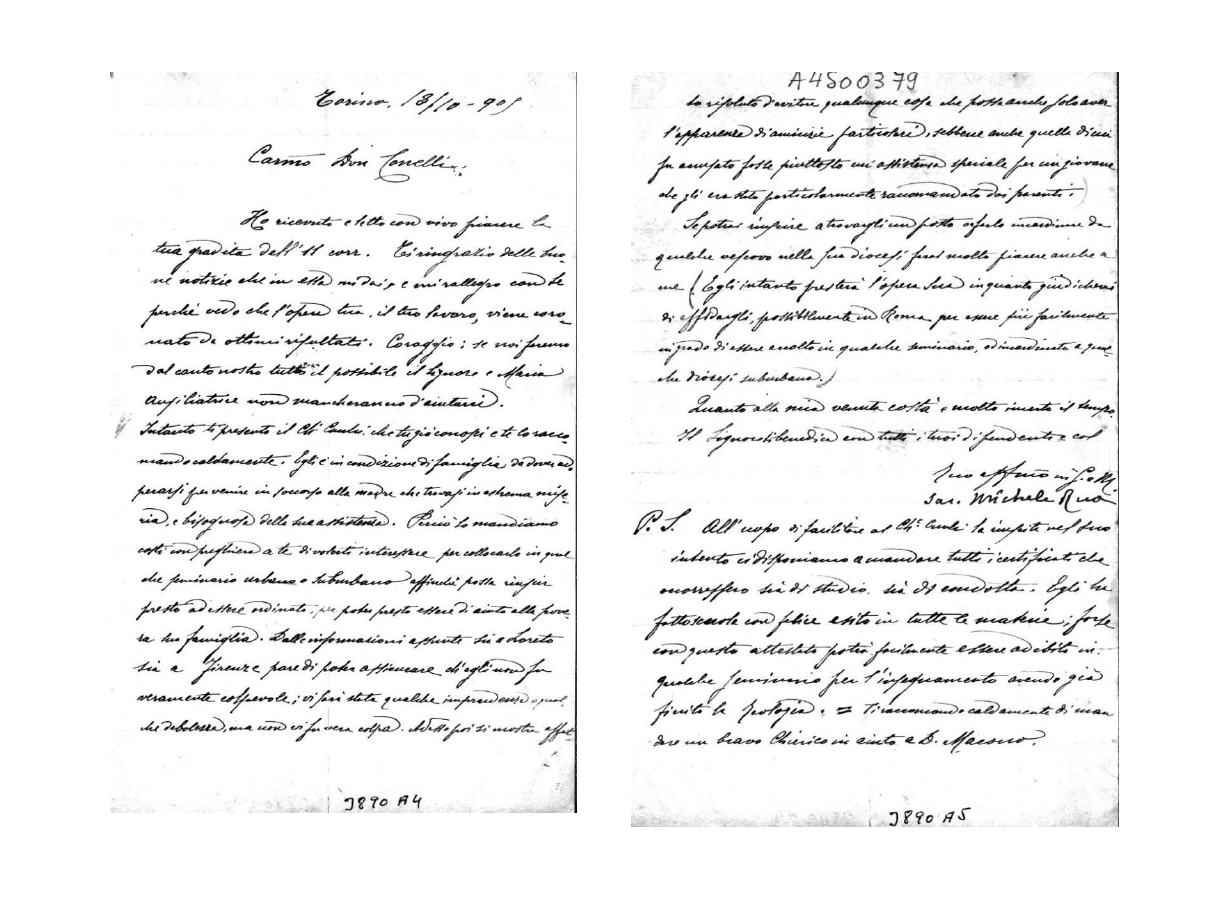 Torino, 13/10-905
Carmo Don Conelli,
Ho ricevuto e letto con vivo piacere la
tua gradita dell'11 corr. Ti ringrazio delle buo-
ne notizie che in essa mi dai, e mi rallegro con te
perché vedo che l'opera tua, il tuo lavoro, viene coro-
nato da ottimi risultati. Coraggio: se noi faremo
dal canto nostro tutto il possibile il Signore e Maria
Ausiliatrice non mancheranno d'aiutarci.
Intanto ti presento il Ch. che tu già conosci e te lo racco-
mando caldamente. Egli è in condizione di famiglia da dover ado-
perarsi per venire in soccorso alla madre che trovasi in estrema mise-
ria, e bisognosa della sua assistenza. Perciò lo mandiamo
costì con preghiera a te di volerti interessare per collocarlo in qual
che seminario urbano o suburbano affinché possa riuscir
presto ad essere ordinato, per poter presto essere di aiuto alla pove-
ra sua famiglia. Dalle informazioni assunte sia a Loreto
sia a Firenze pare di poter assicurare ch'egli non fu
veramente colpevole; vi sarà stata qualche imprudenza o qual
che debolezza, ma non vi fu vera colpa. Adesso poi si mostra affat-
A4500379
to risoluto d'evitar qualunque cosa che possa anche solo aver
l'apparenza di amicizie particolari, sebbene anche quella di cui
fu accusato fosse piuttosto un'assistenza speciale per un giovane
che gli era stato particolarmente raccomandato dai parenti.
Se potrai riuscire a trovargli un posto o farlo incardinare da
qualche vescovo nella sua diocesi farai molto piacere anche a
me (Egli intanto presterà l'opera sua in quanto giudicherai
di affidargli, possibilmente in Roma per essere più facilmente
in grado di essere accolto in qualche seminario, od incardinato a qual-
che diocesi suburbana.)
Quanto alla mia venuta costà è molto incerto il tempo.
Il Signore ti benedica con tutti i tuoi dipendenti e col
tuo affmo in G. e M.
Sac. Michele Rua
P. S. All'uopo di facilitare al Ch. la riuscita nel suo
intento ci disponiamo a mandare tutti i certificati che
occorressero sia di studio, sia di condotta. Egli ha
fatto scuola con felice esito in tutte le materie; forse
con questo attestato potrà facilmente essere adibito in
qualche seminario per l'insegnamento avendo già
finito la teologia. = Ti raccomando caldamente di man
dare un bravo Chierico in aiuto a D.
J890 A4
J890 A5